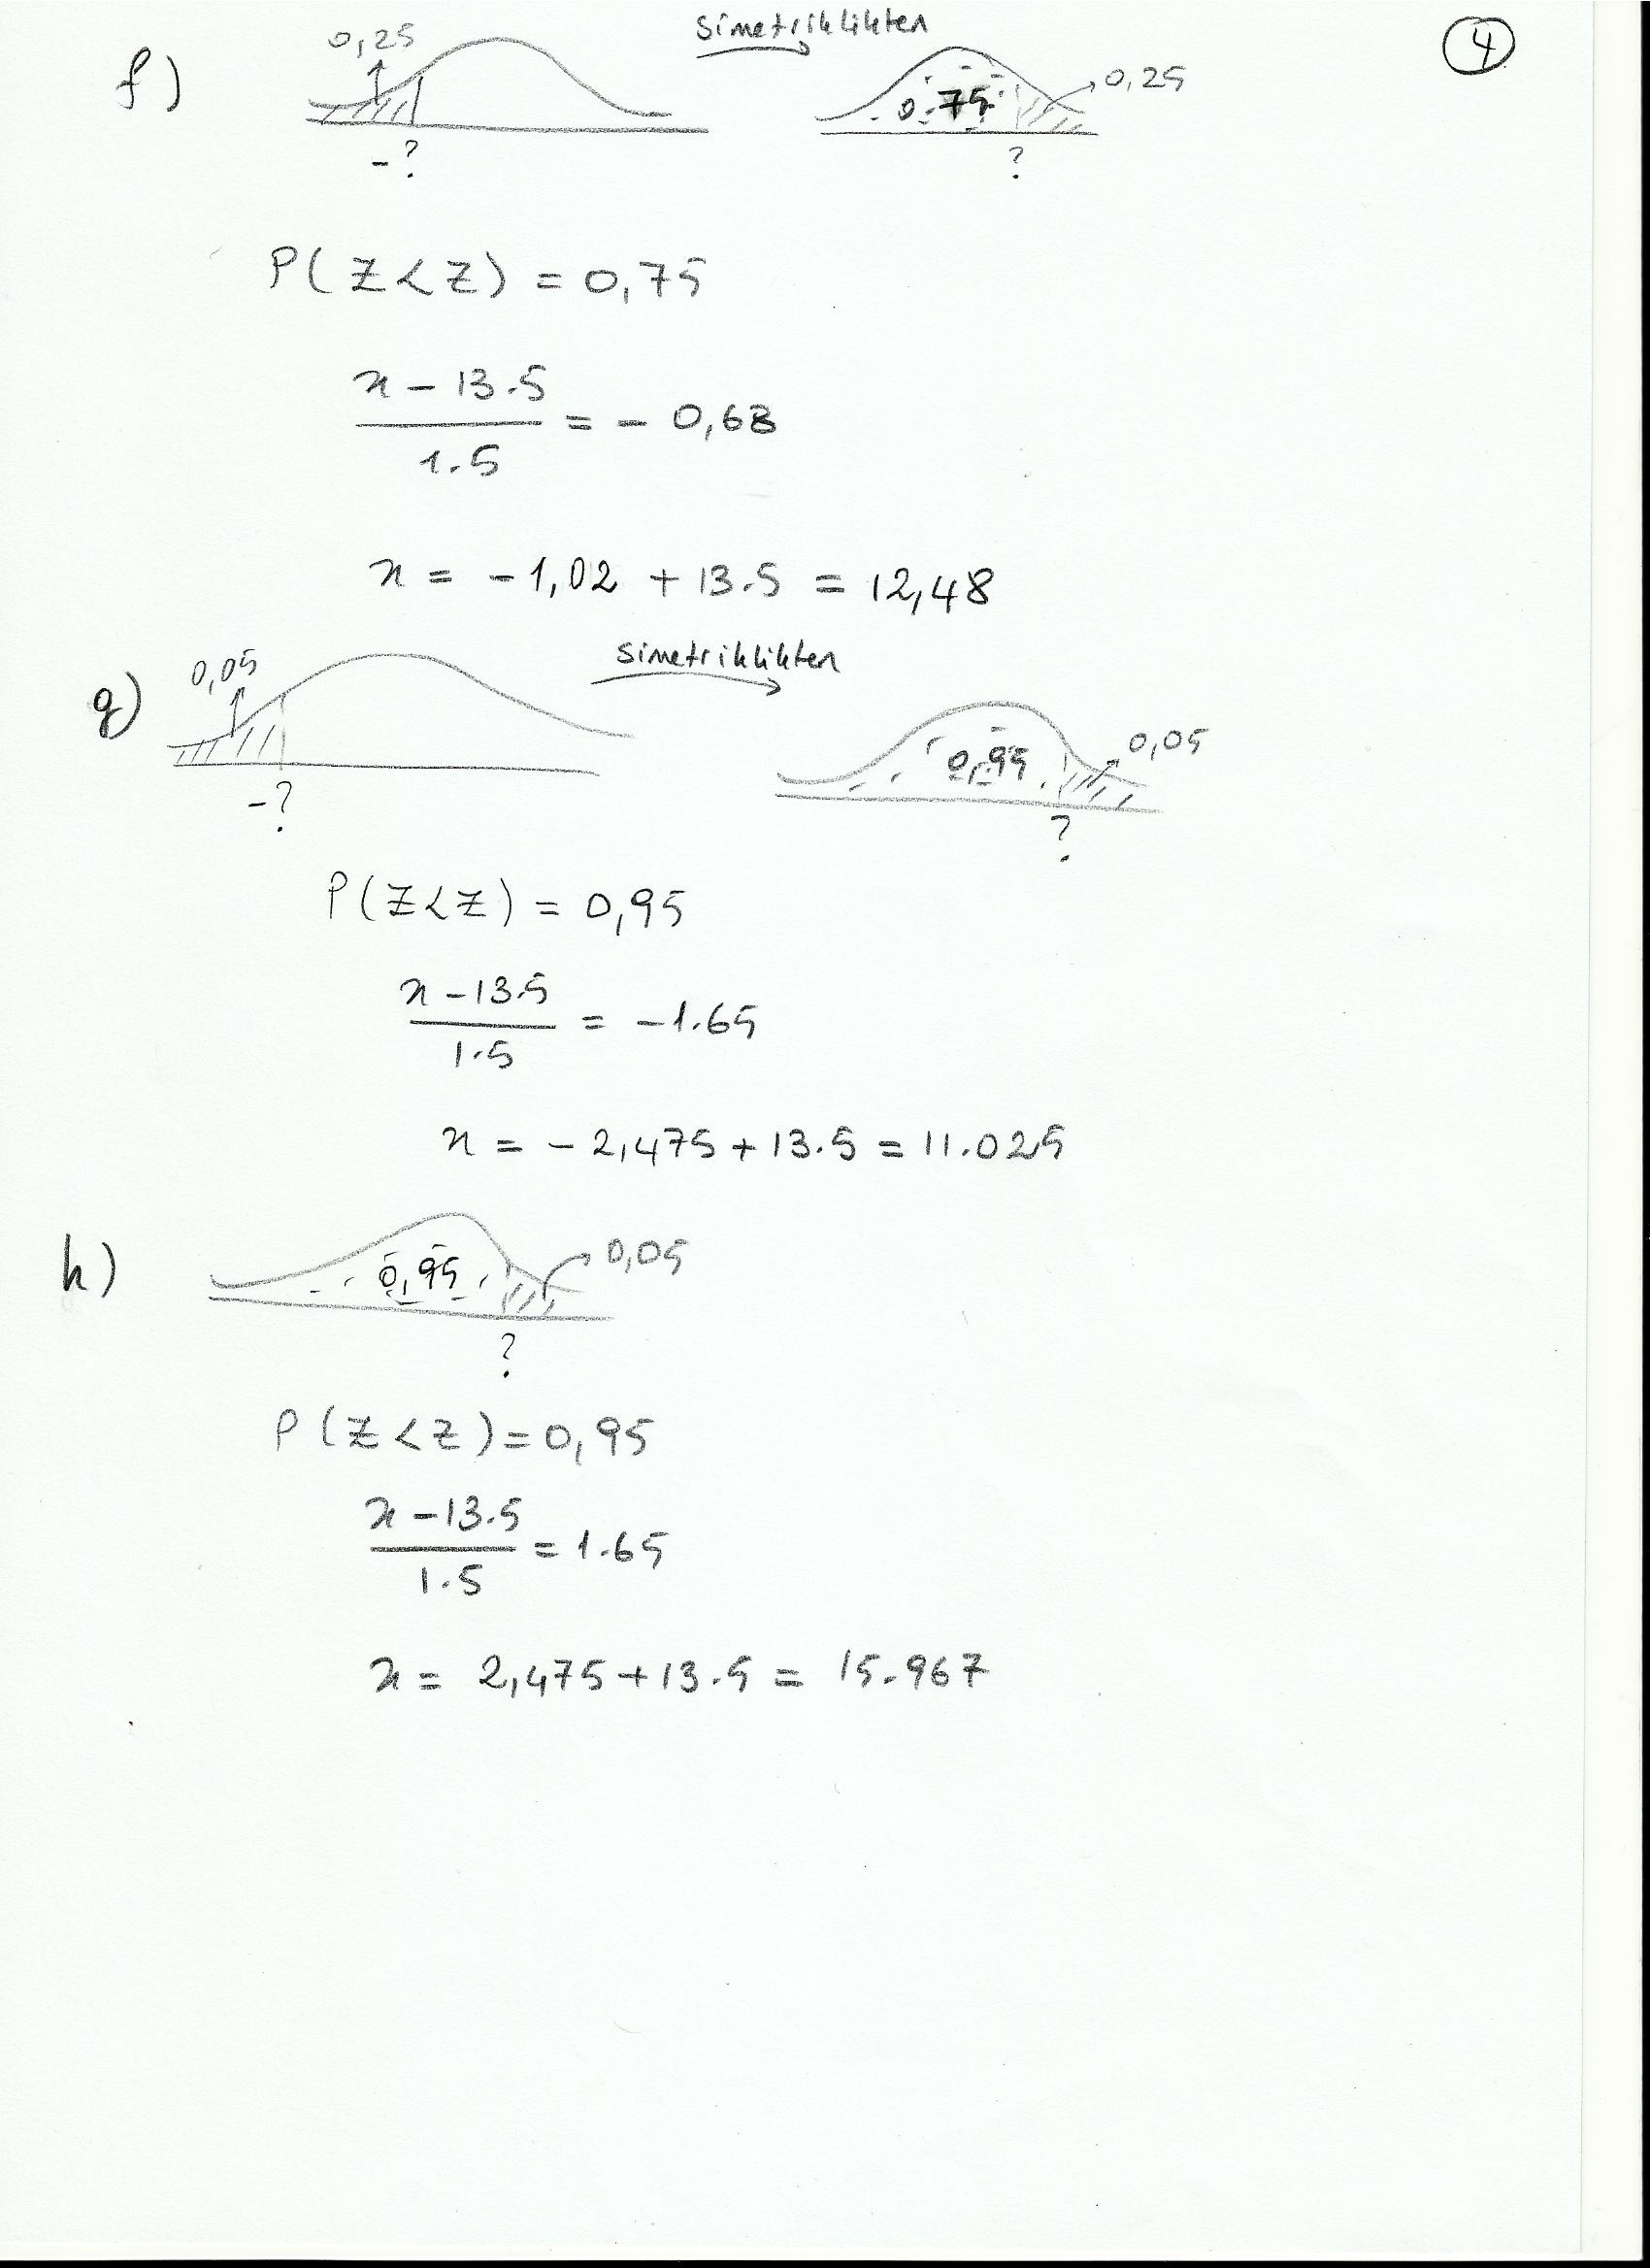 4
f) 0,25 simetriklikten 0.75 0,25
-? ?
P(Z<z) = 0,75
x - 13.5 / 1.5 = - 0,68
x = -1,02 + 13.5 = 12,48
g) 0,05 simetriklikten 0,95 0,05
-? ?
P(Z<z) = 0,95
x - 13.5 / 1.5 = -1.65
x = -2,475 + 13.5 = 11.025
h) 0,95 0,05
?
P(Z<z) = 0,95
x - 13.5 / 1.5 = 1.65
x = 2,475 + 13.5 = 15.967